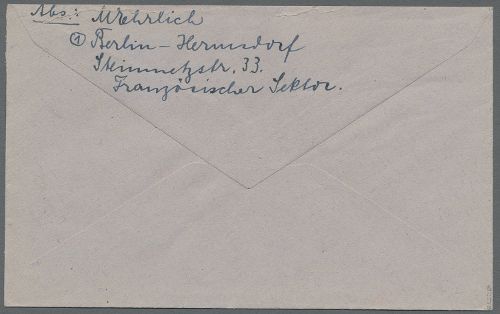 Abs.: Mehrlich
① Berlin-Hermsdorf
Steinmetzstr. 33.
Französischer Sektor.